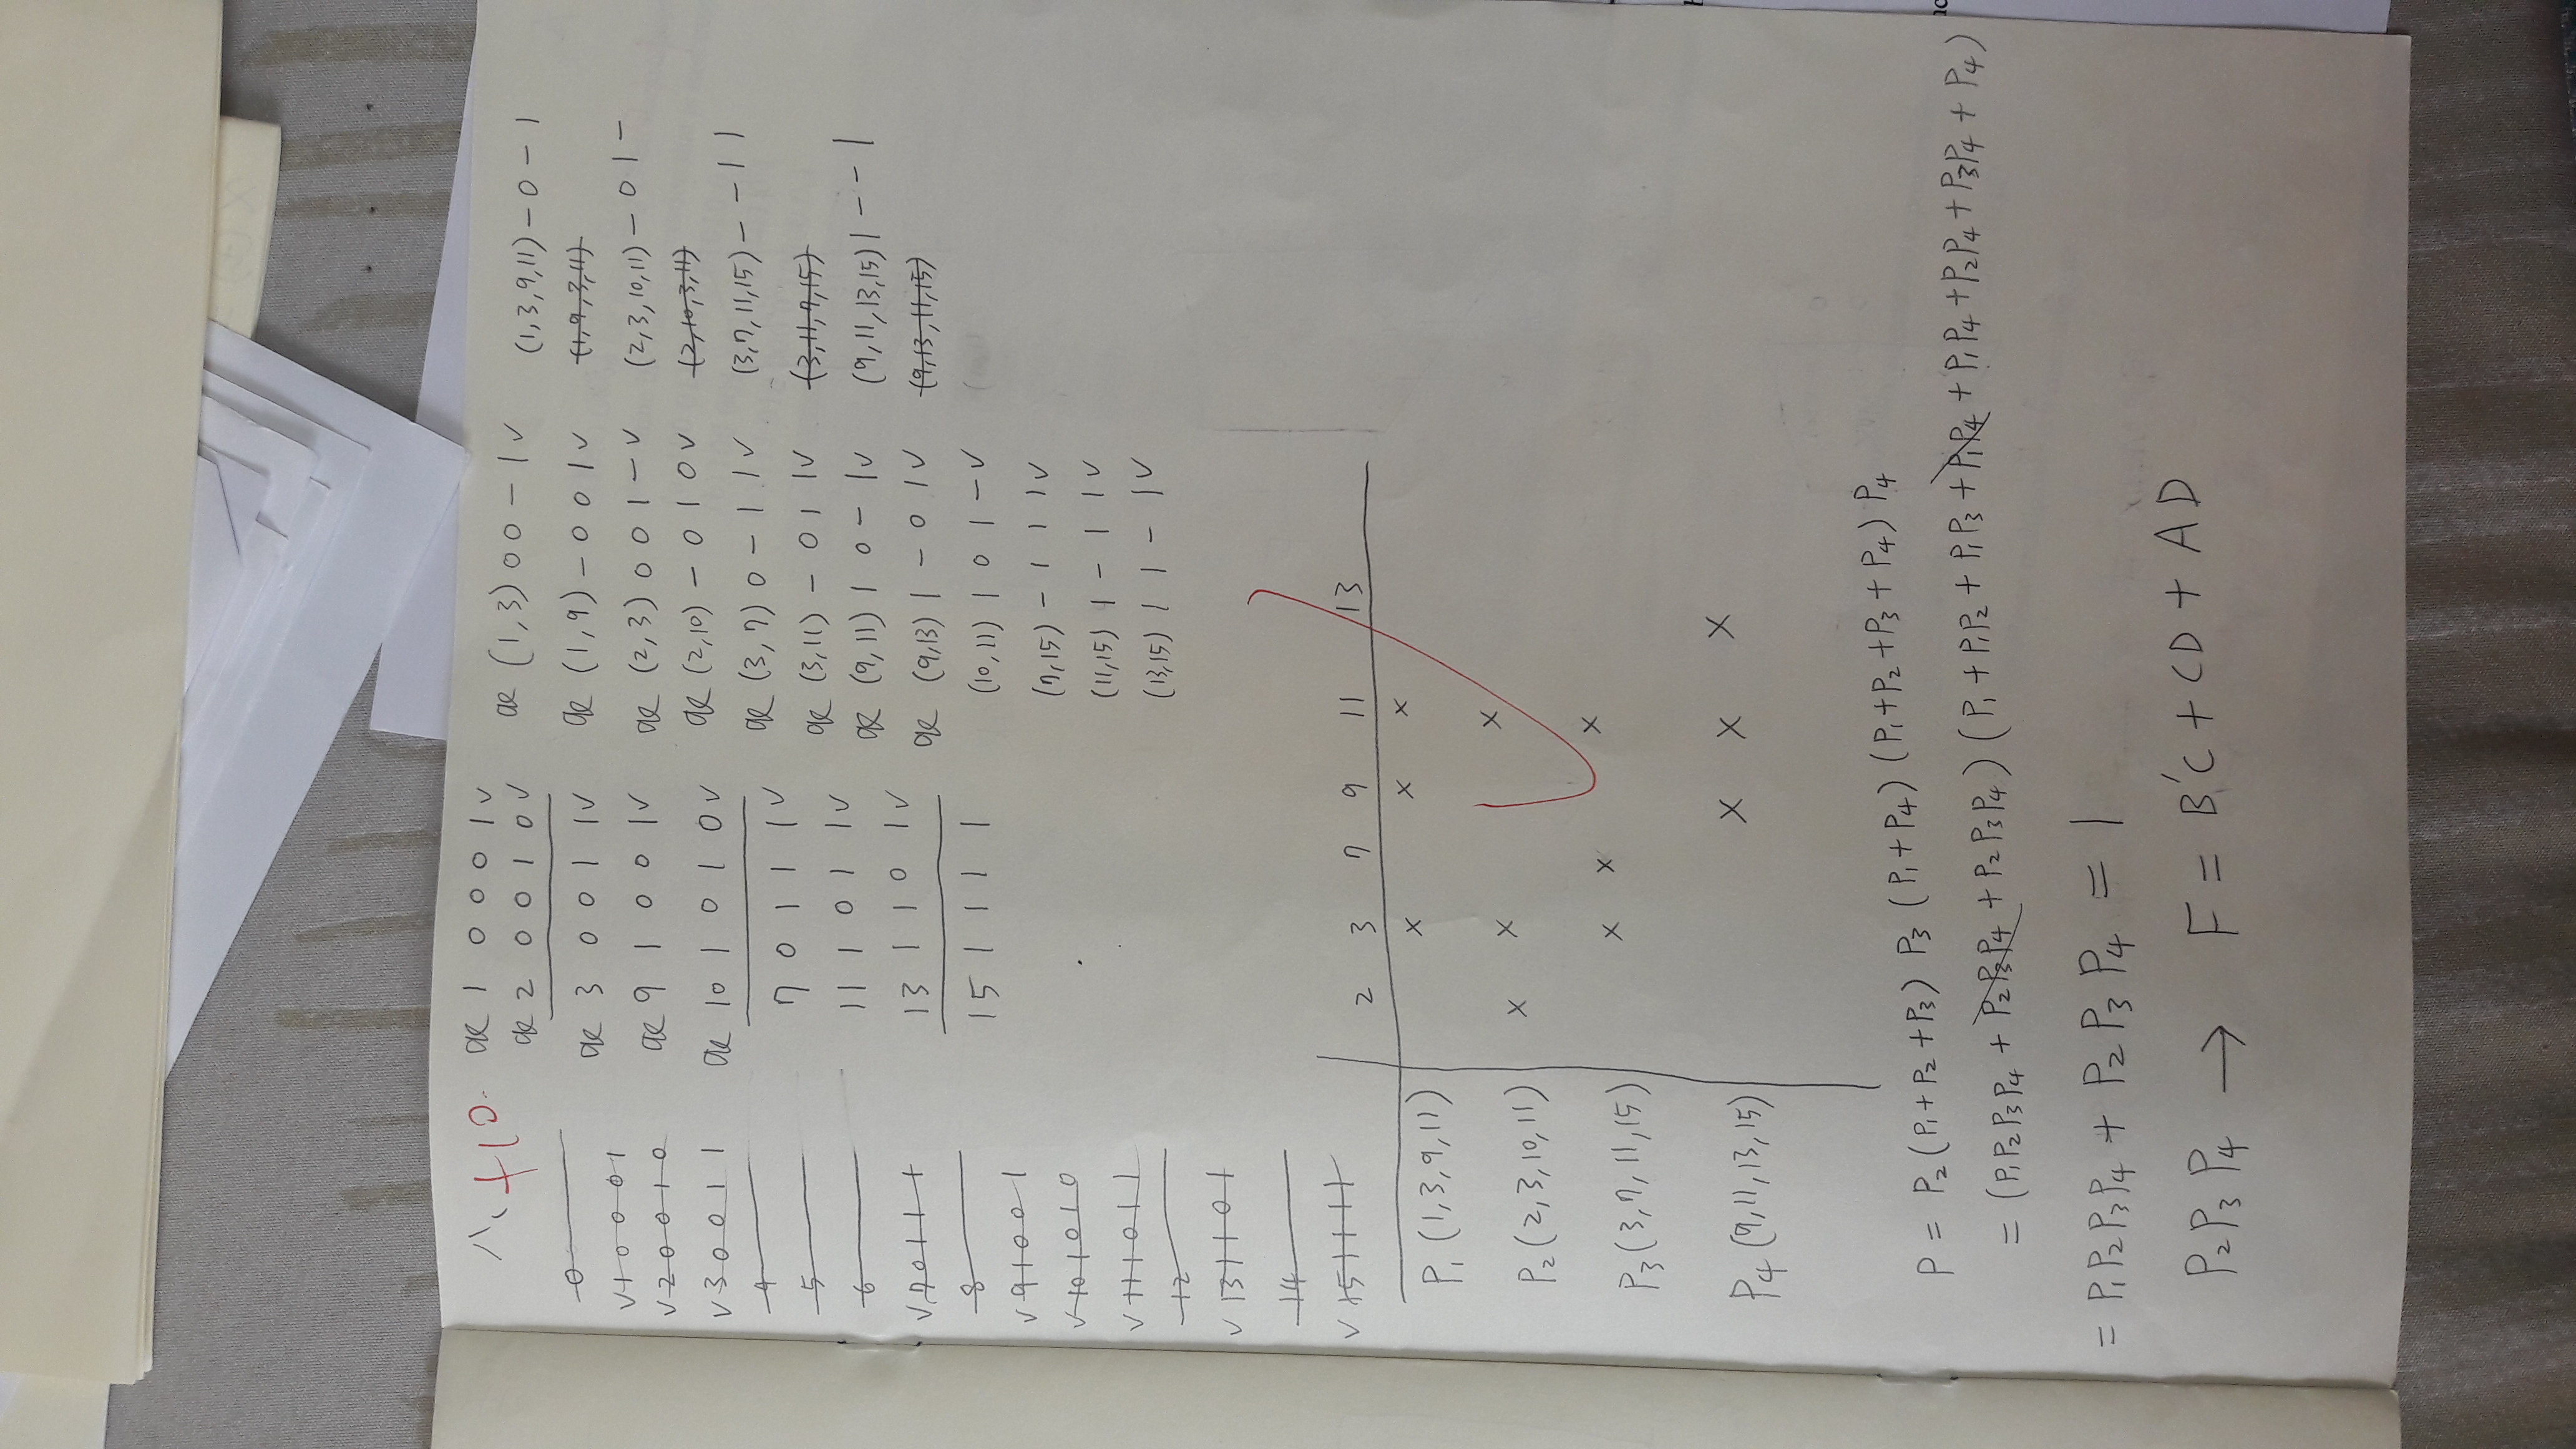 八、 +10.
0
v 1 0 0 0 1
v 2 0 0 1 0
v 3 0 0 1 1
4
5
6
v 7 0 1 1 1
8
v 9 1 0 0 1
v 10 1 0 1 0
v 11 1 0 1 1
12
v 13 1 1 0 1
14
v 15 1 1 1 1
1 0 0 0 1 v
2 0 0 1 0 v
3 0 0 1 1 v
9 1 0 0 1 v
10 1 0 1 0 v
7 0 1 1 1 v
11 1 0 1 1 v
13 1 1 0 1 v
15 1 1 1 1
(1,3) 0 0 - 1 v
(1,9) - 0 0 1 v
(2,3) 0 0 1 - v
(2,10) - 0 1 0 v
(3,7) 0 - 1 1 v
(3,11) - 0 1 1 v
(9,11) 1 0 - 1 v
(9,13) 1 - 0 1 v
(10,11) 1 0 1 - v
(7,15) - 1 1 1 v
(11,15) 1 - 1 1 v
(13,15) 1 1 - 1 v
(1,3,9,11) - 0 - 1
(1,9,3,11)
(2,3,10,11) - 0 1 -
(2,10,3,11)
(3,7,11,15) - - 1 1
(3,11,7,15)
(9,11,13,15) 1 - - 1
(9,13,11,15)
2 3 7 9 11 13
P₁ (1,3,9,11) x x x
P₂ (2,3,10,11) x x x
P₃ (3,7,11,15) x x x
P₄ (9,11,13,15) x x x
P = P₂ (P₁+P₂+P₃) P₃ (P₁+P₄) (P₁+P₂+P₃+P₄) P₄
= (P₁P₂P₃P₄ + P₂P₃P₄ + P₂P₃P₄) (P₁ + P₁P₂ + P₁P₃ + P₁P₄ + P₁P₄ + P₂P₄ + P₃P₄ + P₄)
= P₁P₂P₃P₄ + P₂P₃P₄ = 1
P₂P₃P₄ → F = B'C + CD + AD